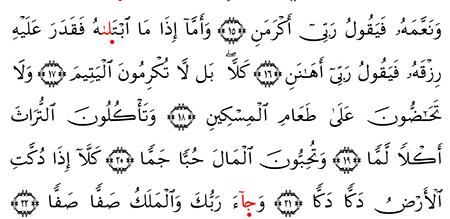 وَنَعَّمَهُۥ فَيَقُولُ رَبِّىٓ أَكْرَمَنِ ﴿١٥﴾ وَأَمَّآ إِذَا مَا ٱبْتَلَىٰهُ فَقَدَرَ عَلَيْهِ
رِزْقَهُۥ فَيَقُولُ رَبِّىٓ أَهَـٰنَنِ ﴿١٦﴾ كَلَّا ۖ بَل لَّا تُكْرِمُونَ ٱلْيَتِيمَ ﴿١٧﴾ وَلَا
تَحَـٰٓضُّونَ عَلَىٰ طَعَامِ ٱلْمِسْكِينِ ﴿١٨﴾ وَتَأْكُلُونَ ٱلتُّرَاثَ
أَكْلًا لَّمًّا ﴿١٩﴾ وَتُحِبُّونَ ٱلْمَالَ حُبًّا جَمًّا ﴿٢٠﴾ كَلَّآ إِذَا دُكَّتِ
ٱلْأَرْضُ دَكًّا دَكًّا ﴿٢١﴾ وَجَآءَ رَبُّكَ وَٱلْمَلَكُ صَفًّا صَفًّا ﴿٢٢﴾